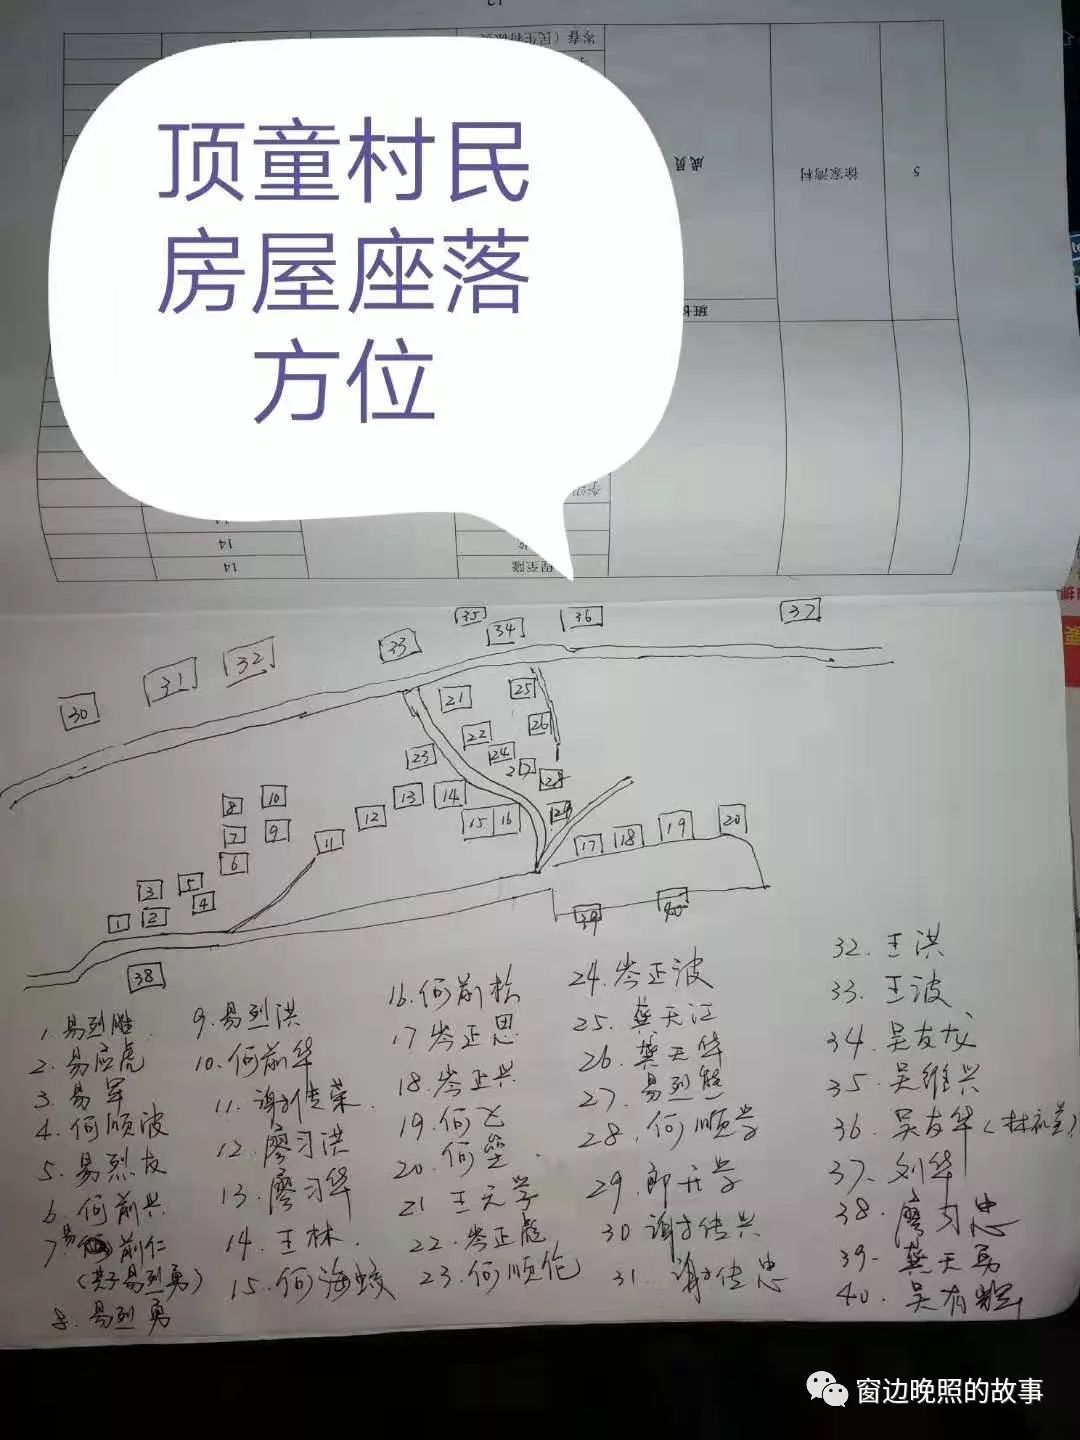 顶童村民
房屋座落
方位
岑春(民主村保员
成员
徐家湾村
5
班长
14
14
程至隆
35
36
37
34
33
32
31
30
21
25
22
26
23
24
27
28
13
14
12
29
15
16
8
10
7
9
6
11
17
18
19
20
3
5
2
4
1
39
40
38
1. 易烈胜
2. 易应虎
3. 易军
4. 何顺波
5. 易烈友
6. 何前兴
7 易前仁
(共子易烈勇)
8. 易烈勇
9. 易烈洪
10. 何前华
11. 谢传荣
12. 廖习洪
13. 廖习华
14. 王林
15. 何海蛟
16. 何前松
17 岑正思
18. 岑正兴
19. 何飞
20. 何垒
21 王元学
22. 岑正彪
23. 何顺伦
24. 岑正波
25. 龚天江
26. 龚天华
27. 易烈
28. 何顺学
29. 郎开学
30 谢传兴
31. 谢传忠
32. 王洪
33. 王波
34. 吴友龙
35. 吴维兴
36. 吴友华
37. 刘华
38. 廖习忠
39. 龚天勇
40. 吴有
窗边晚照的故事